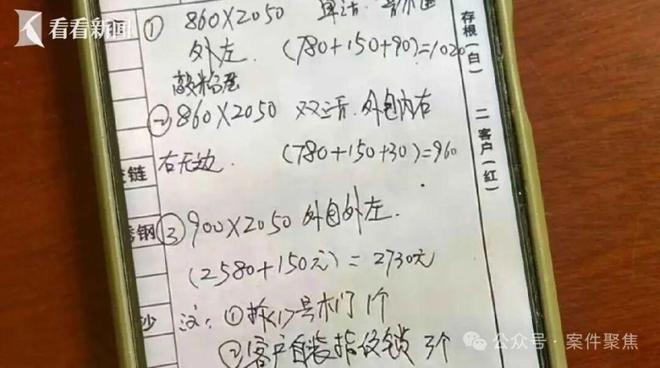 看看新闻
① 860×2050 单活.
外左. (780+150+90)=1020
② 860×2050 双活. 外包内右
右无边. (780+150+30)=960
③ 900×2050 外包外左.
(2580+150元)=2730元
注: ①拆 号木门1个
②客户自装指纹锁 3个
链
钢
沙
存根(白) 二客户(红)
公众号·案件聚焦